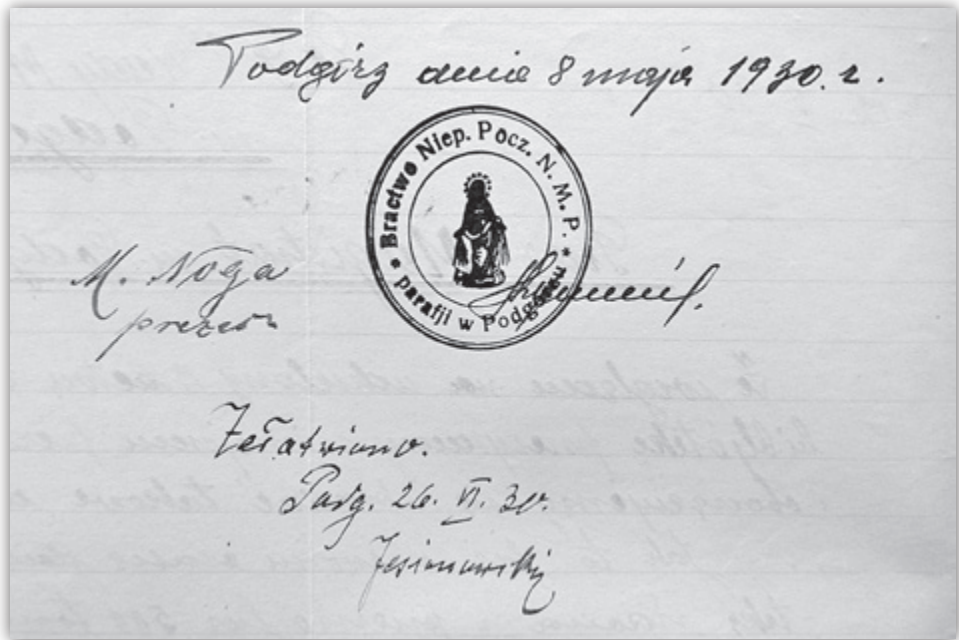 Podgórz dnia 8 maja 1930. r.
* Bractwo Niep. Pocz. N. M. P. *
parafji w Podgórzu
M. Noga
prezes
Załatwiono.
Podg. 26. VI. 30.
Jesionowski